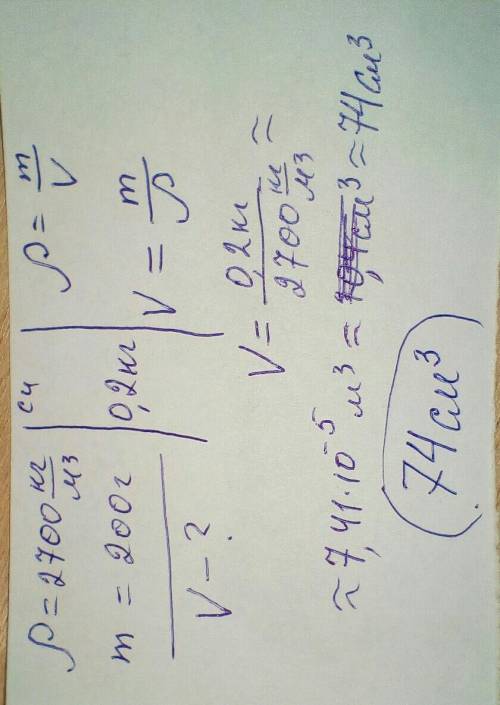 ρ = 2700 кг/м³ | си | ρ = m/V
m = 200г | 0,2кг | V = m/ρ
V - ?
V = 0,2кг / 2700 кг/м³ ≈
≈ 7,41·10⁻⁵ м³ ≈ см³ ≈ 74см³
74см³